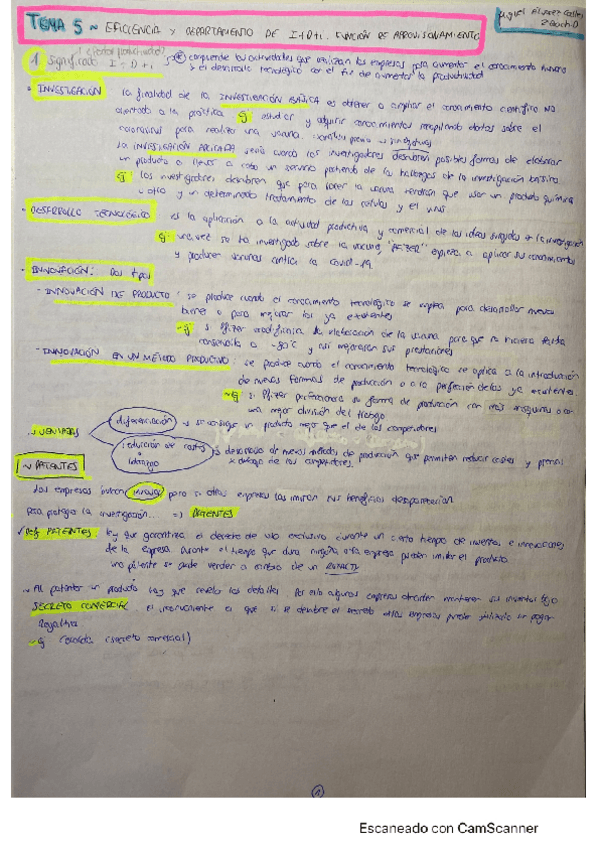 TEMA 5 ~ EFICIENCIA Y DEPARTAMENTO DE I+D+i. FUNCIÓN DE APROVISIONAMIENTO
2 Bach D
1 significado I+D+i
comprende las actividades que realizan las empresas para aumentar el conocimiento humano
y el desarrollo tecnológico con el fin de aumentar la productividad
INVESTIGACIÓN
la finalidad de la INVESTIGACIÓN BÁSICA es obtener o ampliar el conocimiento científico NO
orientado a la práctica ej: estudiar y adquirir conocimientos recopilando datos sobre el
coronavirus para realizar una vacuna.
La INVESTIGACIÓN APLICADA sería cuando los investigadores descubren posibles formas de elaborar
un producto o llevar a cabo un servicio partiendo de los hallazgos de la investigación básica
ej: los investigadores descubren que para hacer la vacuna tendrían que usar un producto químico
u otro y un determinado tratamiento de las células y el virus.
DESARROLLO TECNOLÓGICO
es la aplicación a la actividad productiva y comercial de las ideas surgidas en la investigación
ej: una vez se ha investigado sobre la vacuna, "PFIZER" empieza a aplicar sus conocimientos
y producen vacunas contra la covid-19.
INNOVACIÓN: Dos tipos
- INNOVACIÓN DE PRODUCTO: se produce cuando el conocimiento tecnológico se emplea para desarrollar nuevos
bienes o para mejorar los ya existentes
ej: si Pfizer modificara la elaboración de la vacuna para que no hiciera falta
conservarla a -80°C y así mejorasen sus prestaciones
- INNOVACIÓN EN UN MÉTODO PRODUCTIVO: se produce cuando el conocimiento tecnológico se aplica a la introducción
de nuevas formas de producción o a la perfección de las ya existentes.
ej: si Pfizer perfeccionara su forma de producción con más máquinas o con
una mejor división del trabajo
VENTAJAS
diferenciación
se consigue un producto mejor que el de los competidores
reducción de costes
liderazgo
desarrollo de nuevos métodos de producción que permiten reducir costes y precios
x debajo de los competidores.
~ PATENTES
Las empresas quieren innovar pero si otras empresas las imitan sus beneficios desaparecerían
Para proteger la investigación... => PATENTES
Def PATENTES: ley que garantiza el derecho de uso exclusivo durante un cierto tiempo de inventos e innovaciones
de la empresa. Durante el tiempo que dura ninguna otra empresa puede imitar el producto
una patente se puede vender a cambio de un ROYALTY
~ Al patentar un producto hay que revelar los detalles. Por ello algunas empresas deciden mantener sus inventos bajo
SECRETO COMERCIAL el inconveniente es que si se descubre el secreto otras empresas pueden utilizarlo sin pagar
Royalties
ej CocaCola (secreto comercial)
1
Escaneado con CamScanner